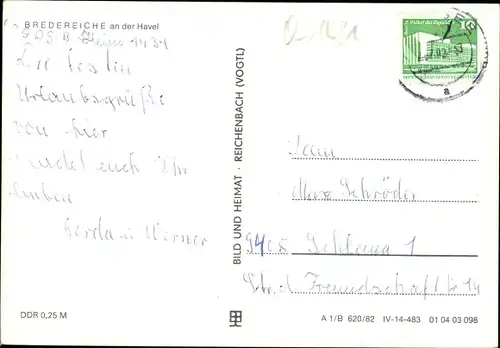 BREDEREICHE an der Havel
Die besten
Urlaubsgrüße
von hier
sendet euch Ihr
Lieben
Gerda u. Werner
BILD UND HEIMAT · REICHENBACH (VOGTL)
10
a
Fam.
Max Schröder
9405 Schlema 1
Str. d. Freundschaft 14
DDR 0,25 M
A 1/B 620/82 IV-14-483 01 04 03 098